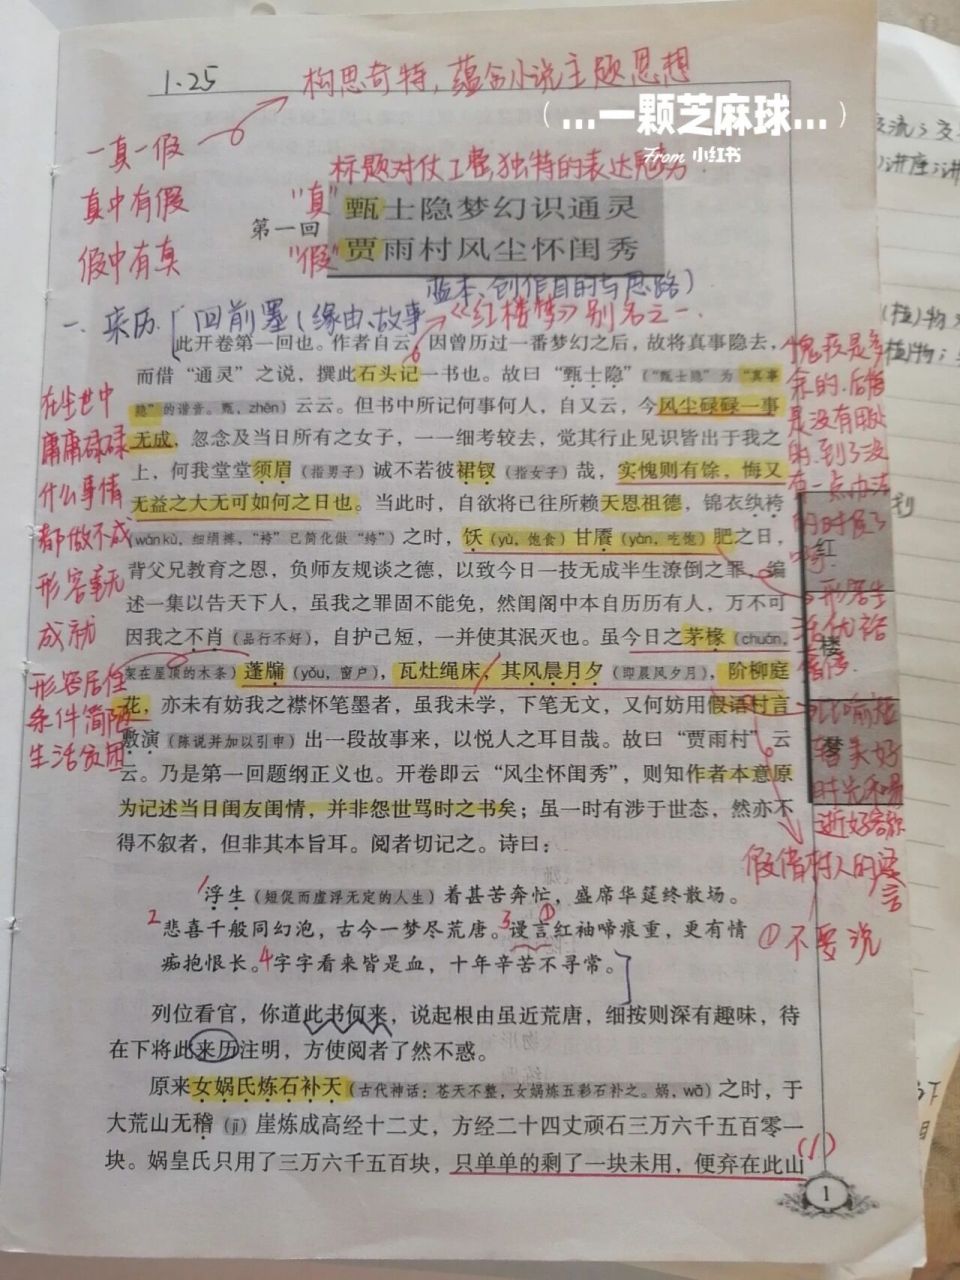 1.25
构思奇特，蕴含小说主题思想
(…一颗芝麻球…)
From 小红书
一真一假
真中有假
假中有真
标题对仗工整 独特的表达魅力
第一回
"真"甄士隐梦幻识通灵
"假"贾雨村风尘怀闺秀
一、来历
回前墨（缘由、故事
蓝本、创作目的与思路）
《红楼梦》别名之一.
此开卷第一回也。作者自云，因曾历过一番梦幻之后，故将真事隐去，
而借“通灵”之说，撰此石头记一书也。故曰“甄士隐”（“甄士隐”为“真事
隐”的谐音。甄，zhēn）云云。但书中所记何事何人，自又云，今风尘碌碌一事
无成，忽念及当日所有之女子，一一细考较去，觉其行止见识皆出于我之
上，何我堂堂须眉（指男子）诚不若彼裙钗（指女子）哉，实愧则有馀，悔又
无益之大无可如何之日也。当此时，自欲将已往所赖天恩祖德，锦衣纨袴
（wánkù，细绢裤，“袴”已简化做“绔”）之时，饫（yù，饱食）甘餍（yàn，吃饱）肥之日，
背父兄教育之恩，负师友规谈之德，以致今日一技无成半生潦倒之罪，编
述一集以告天下人，虽我之罪固不能免，然闺阁中本自历历有人，万不可
因我之不肖（品行不好），自护己短，一并使其泯灭也。虽今日之茅椽（chuán，
架在屋顶的木条）蓬牖（yǒu，窗户），瓦灶绳床，其风晨月夕（即晨风夕月），阶柳庭
花，亦未有妨我之襟怀笔墨者，虽我未学，下笔无文，又何妨用假语村言
敷演（陈说并加以引申）出一段故事来，以悦人之耳目哉。故曰“贾雨村”云
云。乃是第一回题纲正义也。开卷即云“风尘怀闺秀”，则知作者本意原
为记述当日闺友闺情，并非怨世骂时之书矣；虽一时有涉于世态，然亦不
得不叙者，但非其本旨耳。阅者切记之。诗曰：
1浮生（短促而虚浮无定的人生）着甚苦奔忙，盛席华筵终散场。
2悲喜千般同幻泡，古今一梦尽荒唐。3谩言①红袖啼痕重，更有情
痴抱恨长。4字字看来皆是血，十年辛苦不寻常。
列位看官，你道此书何来，说起根由虽近荒唐，细按则深有趣味，待
在下将此来历注明，方使阅者了然不惑。
原来女娲氏炼石补天（古代神话：苍天不整，女娲炼五彩石补之。娲，wā）之时，于
大荒山无稽（jī）崖炼成高经十二丈，方经二十四丈顽石三万六千五百零一
块。娲皇氏只用了三万六千五百块，只单单的剩了一块未用，便弃在此山
(1)
1
在尘世中
庸庸碌碌
什么事情
都做不成
形容事无
成就
形容居住
条件简陋
生活贫困
愧疚是多
余的.后悔
是没有用处
的.到了没
有一点办法
的时候了
形容生
活优裕
比喻
美好
时光
逝
假借村人的
言
①不要说
红
楼
梦
交流
讲座
植物